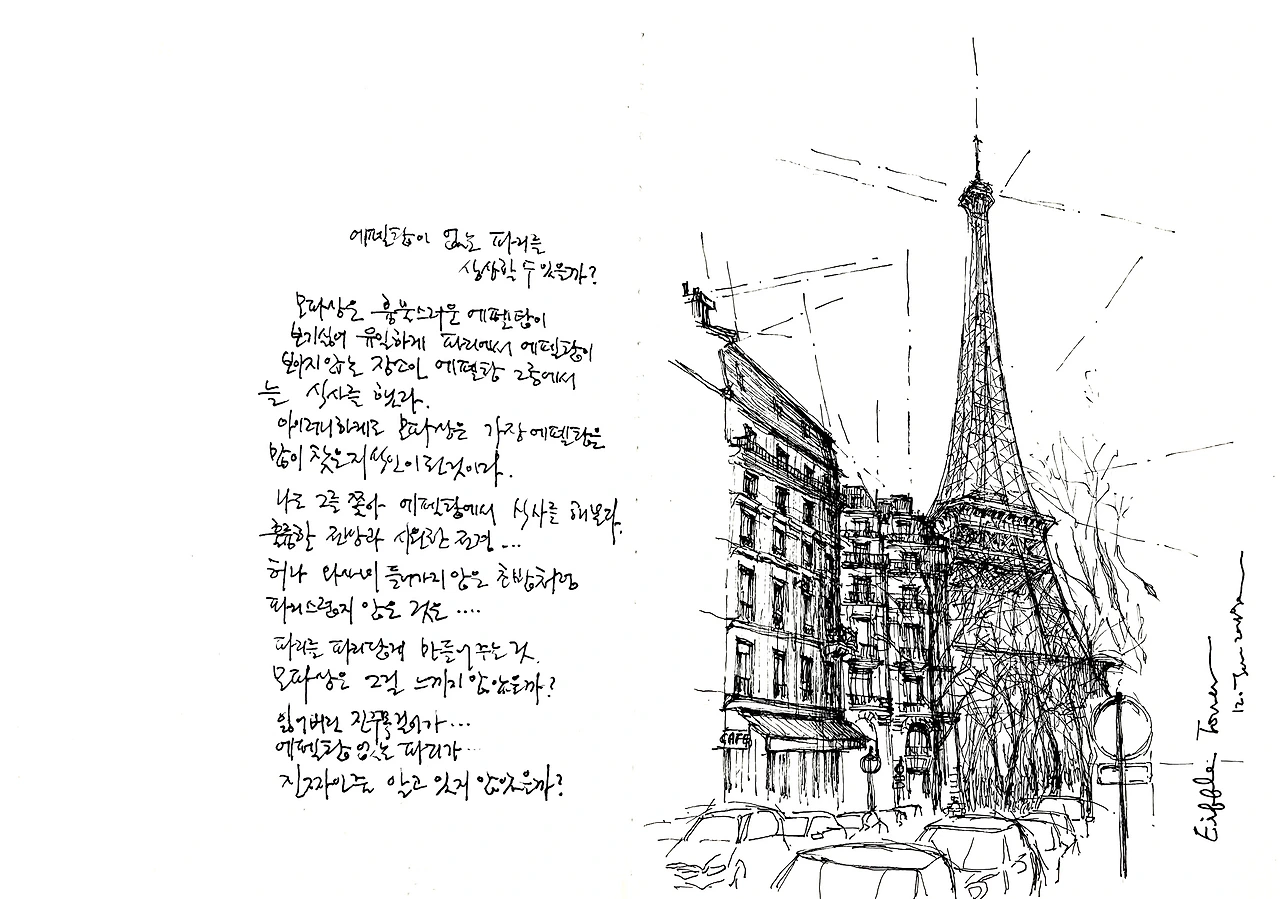 에펠탑이 없는 파리를
상상할 수 있을까?
모파상은 흉물스러운 에펠탑이
보기싫어 유일하게 파리에서 에펠탑이
보이지 않는 장소인 에펠탑 그릉에서
늘 식사를 했다.
아이러니하게도 모파상은 가장 에펠탑을
많이 찾은 지식인이란것이다.
나도 그를 쫓아 에펠탑에서 식사를 해본다.
훌륭한 전망과 시원한 전경...
허나 와사비 들어가지 않은 초밥처럼
파리스럽지 않은 것은....
파리를 파리답게 만들어 주는 것.
모파상은 그걸 느끼지 않았을까?
잃어버린 진주목걸이가...
에펠탑 없는 파리가...
진짜인줄 알고 있지 않았을까?
CAFE
Eiffel Tower